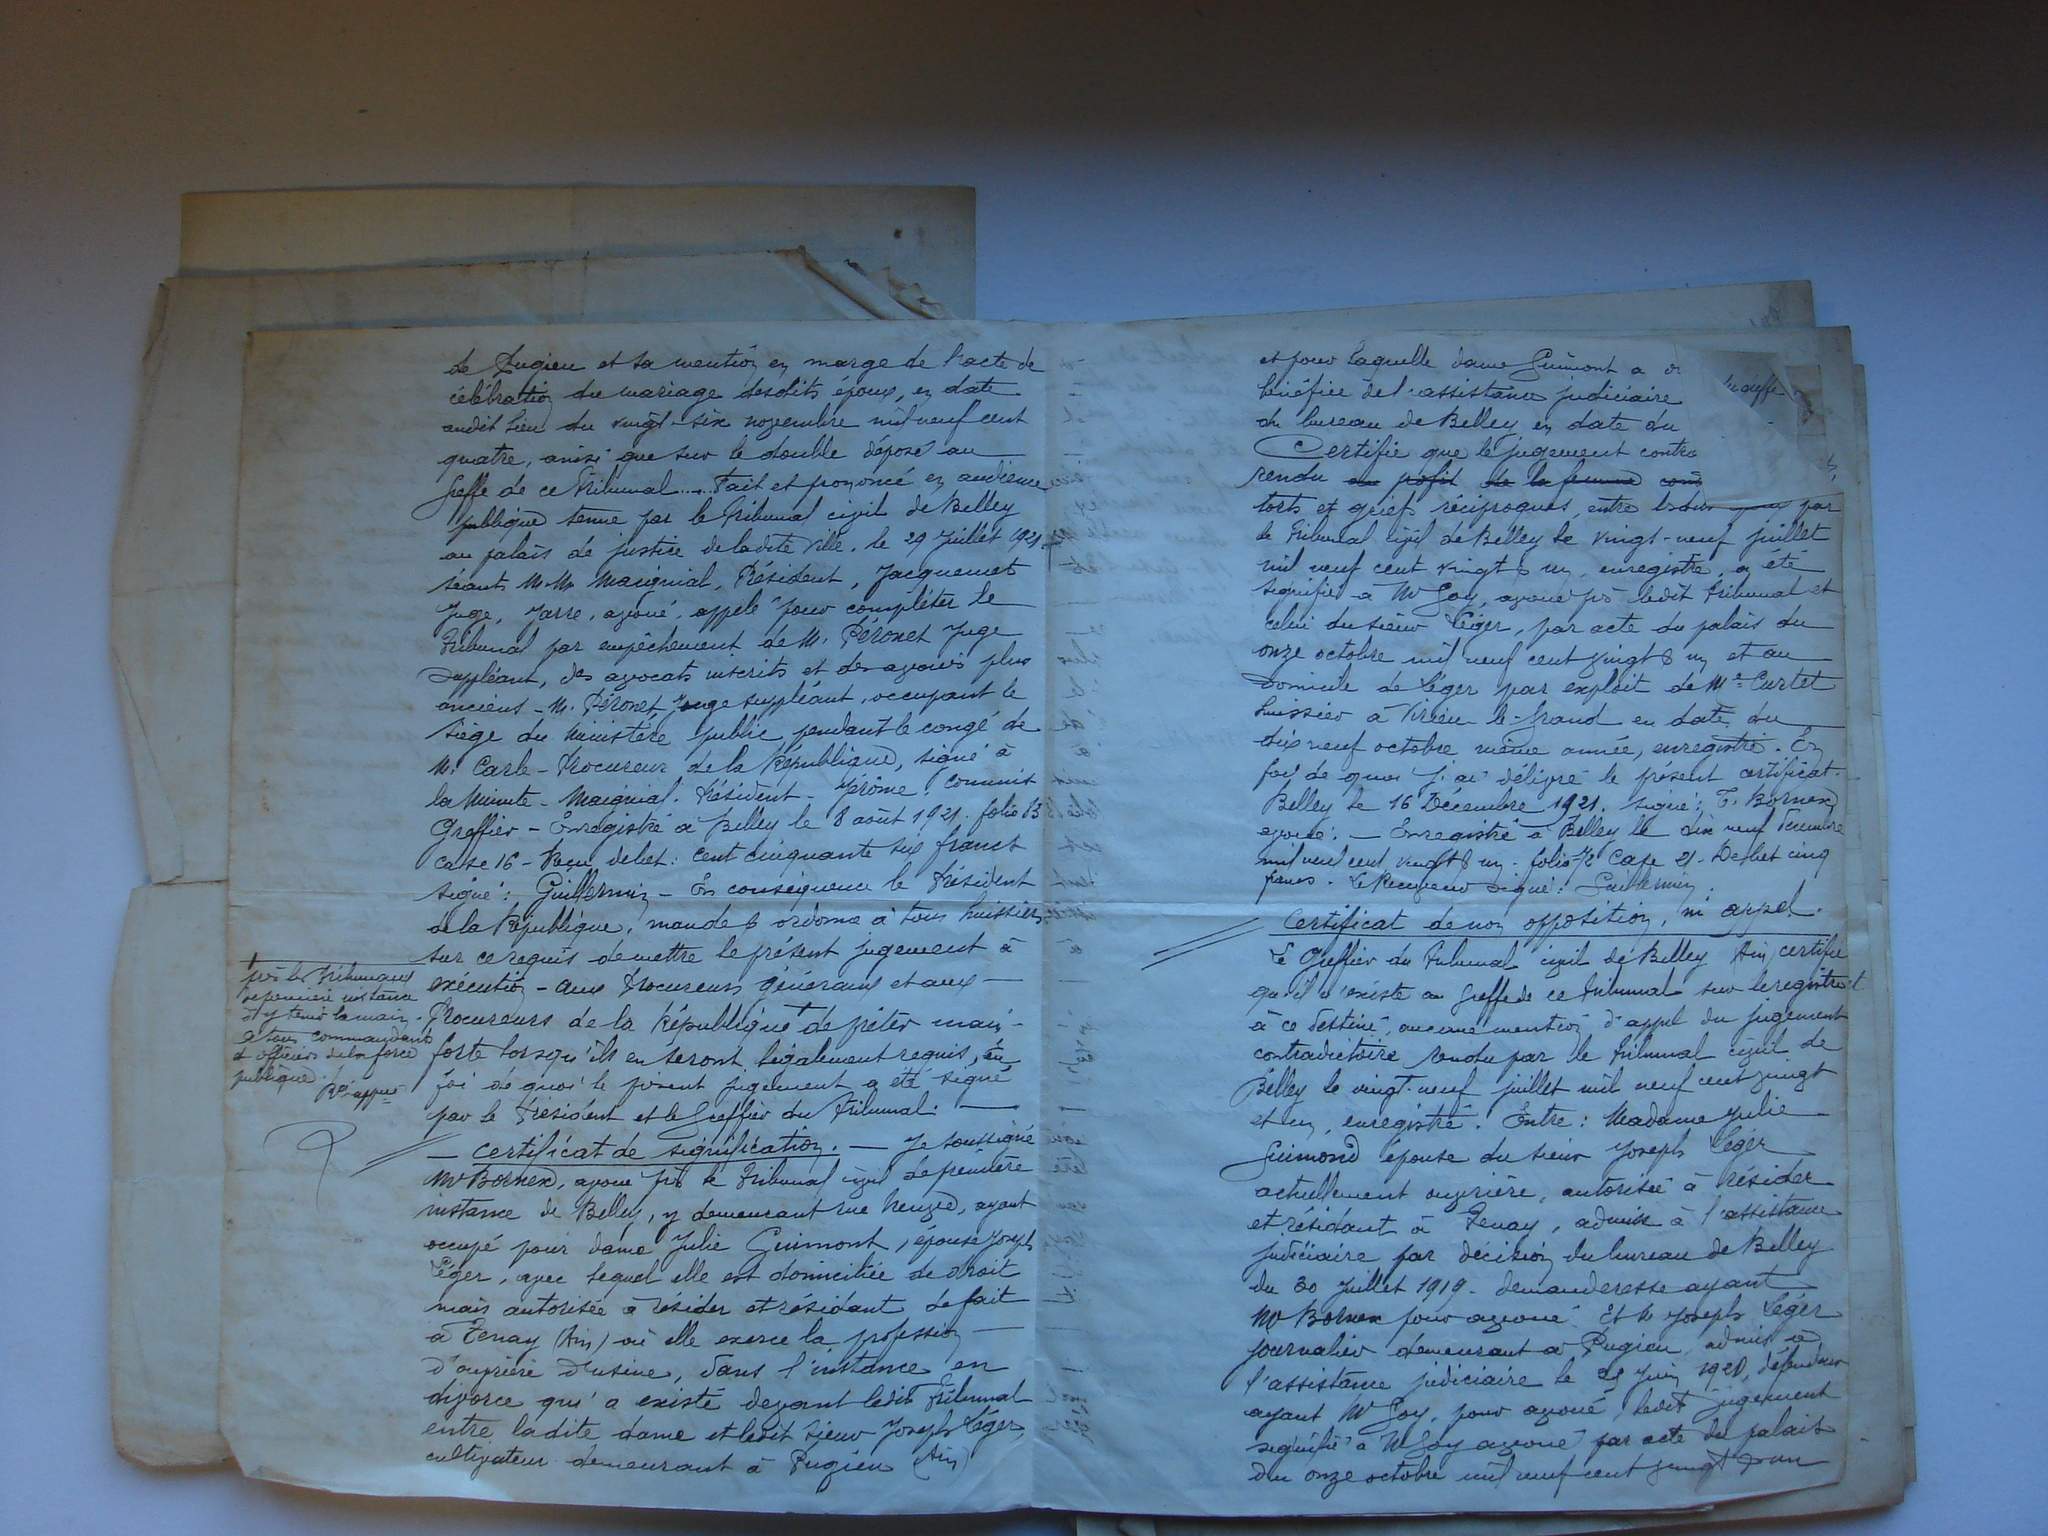 de Pugieu et sa mention en marge de l'acte de
célébration du mariage desdits époux, en date
audit lieu du vingt-six novembre mil neuf cent
quatre, ainsi que sur le double déposé au
Greffe de ce Tribunal..... Fait et prononcé en audience
publique tenue par le Tribunal civil de Belley
au palais de justice de ladite ville, le 29 Juillet 1921
séants M.M. Maignial, Président, Jacquemet
Juge, Jarre, avoué, appelé pour compléter le
Tribunal par empêchement de M. Péronet Juge
suppléant, des avocats inscrits et des avoués plus
anciens - M. Péronet Juge suppléant, occupant le
siège du Ministère public pendant le congé de
M. Carle - Procureur de la République, signé à
la Minute - Maignial. Président - Jérôme, commis
Greffier - Enregistré à Belley le 8 août 1921. folio 83
case 16 - Reçu debet : cent cinquante six francs
signé : Guillermin - En conséquence le Président
de la République, mande & ordonne à tous huissiers
sur ce requis de mettre le présent jugement à
exécution - aux Procureurs généraux et aux
Procureurs de la République de prêter main-
forte lorsqu'ils en seront légalement requis, en
foi de quoi le présent jugement a été signé
par le Président et le Greffier du Tribunal.
près les Tribunaux
de première instance
d'y tenir la main.
à tous commandants
& officiers de la force
publique.
- Certificat de signification. - Je soussigné
Me Bornex, avoué près le Tribunal civil de première
instance de Belley, y demeurant rue neuve, ayant
occupé pour dame Julie Guimont, épouse Joseph
Léger, avec lequel elle est domiciliée de droit
mais autorisée à résider et résidant de fait
à Tenay (Ain) où elle exerce la profession
d'ouvrière d'usine, dans l'instance en
divorce qui a existé devant ledit Tribunal
entre ladite dame et ledit sieur Joseph Léger
cultivateur demeurant à Pugieu (Ain)
et pour laquelle dame Guimont a
bénéfice de l'assistance judiciaire
du bureau de Belley en date du
Certifie que le jugement contra
rendu au profit de la femme
torts et griefs réciproques, entre par
le Tribunal civil de Belley le vingt-neuf juillet
mil neuf cent vingt & un, enregistré, a été
signifié à Me Goy, avoué près ledit Tribunal et
celui du sieur Léger, par acte du palais du
onze octobre mil neuf cent vingt & un et au
domicile de Léger par exploit de Me Curtet
huissier à Virieu-le-Grand en date du
dix neuf octobre même année, enregistré. En
foi de quoi j'ai délivré le présent certificat.
Belley le 16 Décembre 1921. signé : T. Bornex
avoué. - Enregistré à Belley le dix neuf Décembre
mil neuf cent vingt & un. folio 72 Case 21. Debet cinq
francs. Le Receveur signé : Guillermin.
Certificat de non opposition, ni appel.
Le Greffier du Tribunal civil de Belley (Ain) certifie
qu'il n'existe au Greffe de ce Tribunal sur le registre
à ce destiné, aucune mention d'appel du jugement
contradictoire rendu par le Tribunal civil de
Belley le vingt-neuf juillet mil neuf cent vingt
et un, enregistré. Entre : Madame Julie
Guimond épouse du sieur Joseph Léger
actuellement ouvrière, autorisée à résider
et résidant à Tenay, admise à l'assistance
judiciaire par décision du bureau de Belley
du 30 Juillet 1919. demanderesse ayant
Me Bornex pour avoué. Et Joseph Léger
journalier demeurant à Pugieu, admis à
l'assistance judiciaire le 25 Juin 1920, défendeur
ayant Me Goy, pour avoué, ledit jugement
signifié à Me Goy avoué par acte du palais
du onze octobre mil neuf cent vingt & un